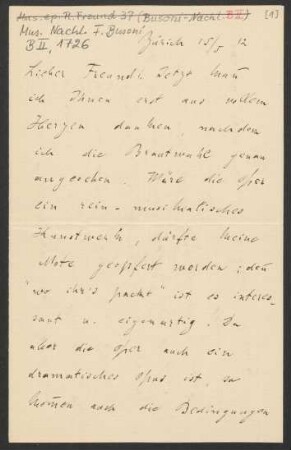 Mus. ep. R. Freund 37 (Busoni-Nachl. B II) [1]
Mus. Nachl. F. Busoni
B II, 1726
Zürich 15/5 12
Lieber Freund! Jetzt kann
ich Ihnen erst aus vollem
Herzen danken, nachdem
ich die Brautwahl genau
angesehen. Wäre die Oper
ein rein-musikalisches
Kunstwerk, dürfte keine
Note geopfert werden; denn
"wo ihr's packt" ist es interes-
sant u. eigenartig. Da
aber die Oper auch ein
dramatisches Opus ist, so
kommen auch die Bedingungen